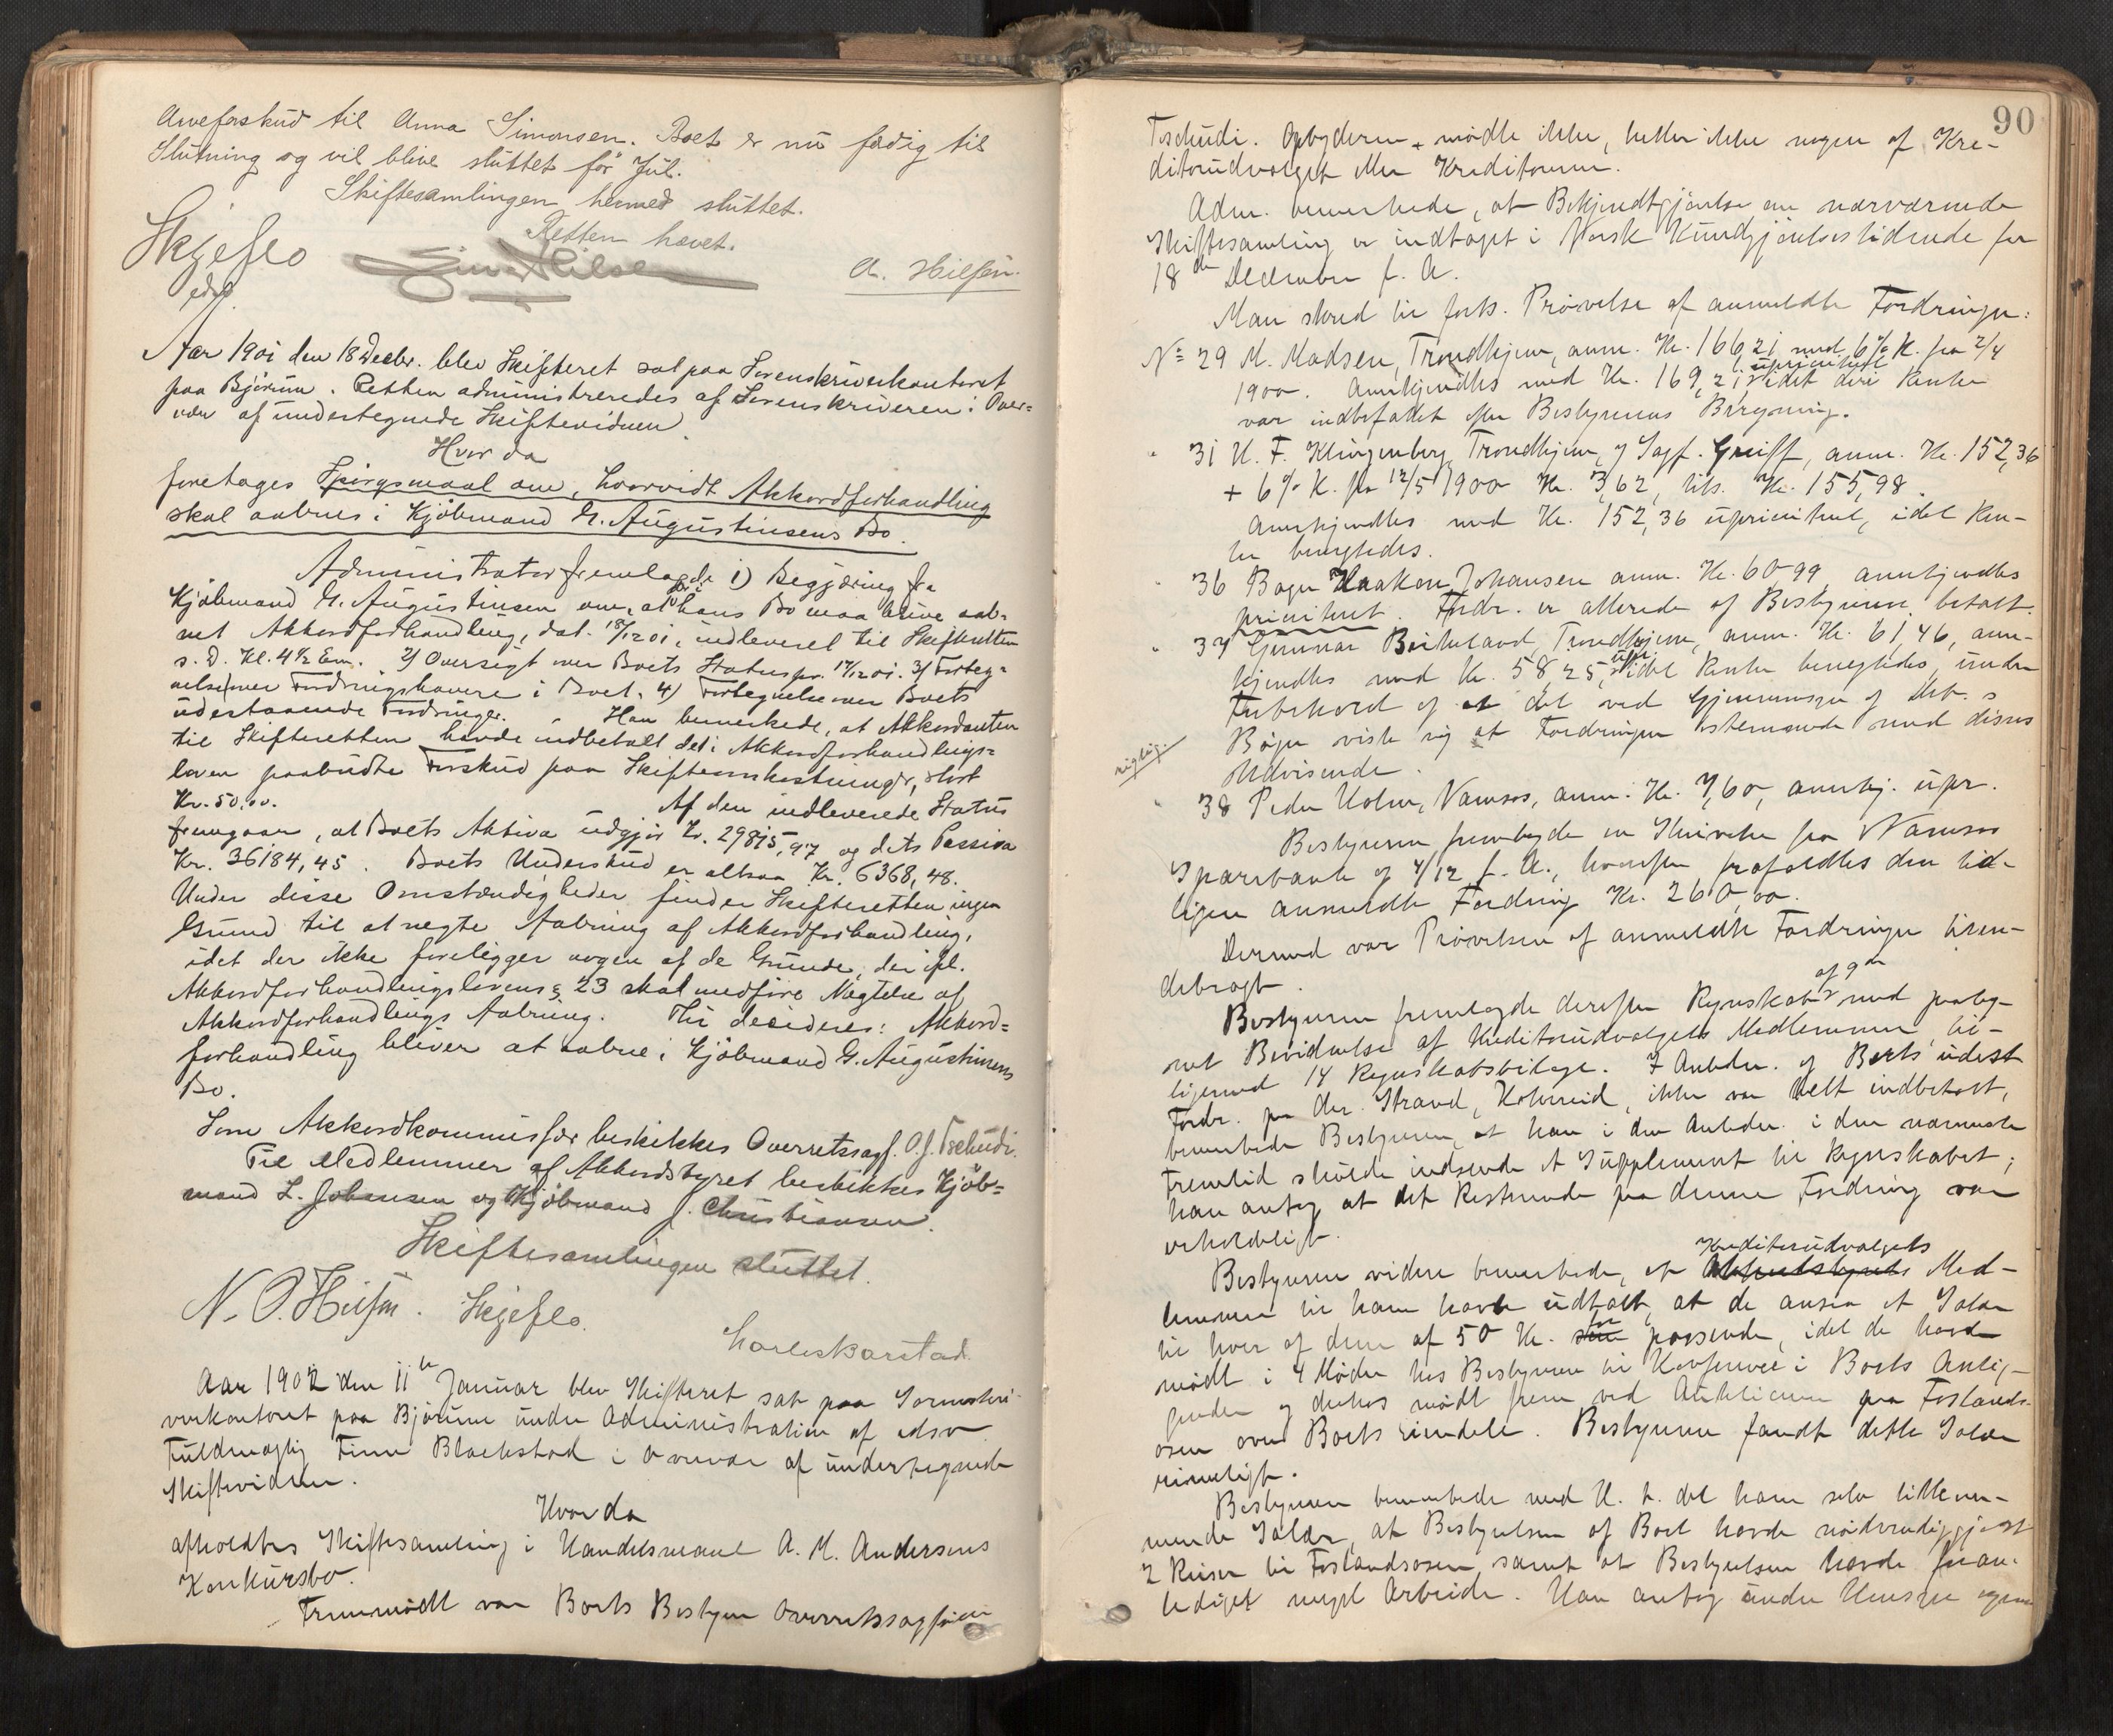 Arveforskud til Anna Simonsen. Boet er nu færdig til
Slutning og vil blive sluttet før Jul.
Skiftesamlingen hermed sluttet.
Retten hævet.
Skjeflo
edsv.
A. Hilsen.
Aar 1901 den 18 Decbr. blev Skifteret sat paa Sorenskriverkontoret
paa Bjørum. Retten administreredes af Sorenskriveren i Over-
vær af undertegnede Skiftevidner
Hvor da
foretoges Spørgsmaal om, hvorvidt Akkordforhandling
skal aabnes i Kjøbmand G. Augustinsens Bo.
Administrator fremlagde 1) Begjæring fra
Kjøbmand G. Augustinsen om, at der i hans Bo maa blive aab-
net Akkordforhandling, dat. 18/12 01, indleveret til Skifteretten
s. D. Kl. 4½ Em. 2) Oversigt over Boets Status pr. 17/12 01. 3) Forteg-
nelse over Fordringshavere i Boet. 4) Fortegnelse over Boets
udestaaende Fordringer. Han bemerkede, at Akkordanten
til Skifteretten havde indbetalt det i Akkordforhandlings-
loven paabudte Forskud paa Skifteomkostninger, stort
Kr. 50.00. Af den indleverede Status
fremgaar, at Boets Aktiva udgjør Kr. 29815,97 og dets Passiva
Kr. 36184,45. Boets Underskud er altsaa Kr. 6368,48.
Under disse Omstændigheder finder Skifteretten ingen
Grund til at negte Aabning af Akkordforhandling,
idet der ikke foreligger nogen af de Grunde, der ifl.
Akkordforhandlingslovens § 23 skal medføre Nægtelse af
Akkordforhandlings Aabning. Thi decideres: Akkord-
forhandling bliver at aabne i Kjøbmand G. Augustinsens
Bo.
Som Akkordkommissær beskikkes Overretssagf. O. J. Tschudi.
Til Medlemmer af Akkordstyret beskikkes Kjøb-
mand L. Johansen og Kjøbmand J. Christiansen.
Skiftesamlingen sluttet.
N. O. Hilsen. Skjeflo.
Aar 1902 den 11te Januar blev Skifteret sat paa Sorenskri-
verkontoret paa Bjørum under Administration af edsv.
Fuldmægtig Finn Blackstad i Overvær af undertegnede
Skiftevidner.
Hvor da
afholdtes Skiftesamling i Handelsmand A. M. Andersens
Konkursbo.
Fremmødt var Boets Bestyrer Overretssagfører
90
Tschudi. Opbyderen mødte ikke, heller ikke nogen af Kre-
ditorudvalget eller Kreditorerne.
Adm. bemerkede, at Bekjendtgjørelse om nærværende
Skiftesamling er indtaget i Norsk Kundgjørelsestidende for
18de December f. A.
Man skred til forts. Prøvelse af anmeldte Fordringer:
No 29 M. Madsen, Trondhjem, anm. Kr. 166,21 med 6% R. fra 2/4
1900. Anerkjendtes med Kr. 169,21 uprioriteret idet deri Renter
var indbefattet efter Bestyrerens Beregning.
" 31 H. F. Klingenberg Trondhjem, v/ Sagf. Greiff, anm. Kr. 152,36
+ 6% R. fra 12/5 1900 Kr. 3,62, tils. Kr. 155,98.
Anerkjendtes med Kr. 152,36 uprioriteret, idet Ren-
ter benegtedes.
" 36 Bager Haakon Johansen anm. Kr. 60.99 anerkjendtes
prioriteret. Fordr. er allerede af Bestyreren betalt.
" 37 Gunnar Birkeland, Trondhjem, anm. Kr. 61,46, aner-
kjendtes med Kr. 58,25, upr. idet Renter benegtedes, under
Forbehold af at det ved Gjennemsyn af Deb.s
Bøger viste sig at Fordringen stemmede med disses
Udvisende.
rigtig.
" 38 Peder Holm, Namsos, anm. Kr. 7,60, anerkj. upr.
Bestyreren fremlagde en Skrivelse fra Namsos
Sparebank af 4/12 f. A., hvorefter frafaldtes den tid-
ligere anmeldte Fordring Kr. 260,00.
Dermed var Prøvelsen af anmeldte Fordringer tilen-
debragt.
Bestyreren fremlagde derefter Regnskab med paateg-
net Bevidnelse af Kreditorudvalgets Medlemmer, til-
ligemed 14 Regnskabsbilage. I Anledn. af Boets udest.
Fordr. paa Chr. Strand, Kolvereid, ikke var helt indbetalt,
bemerkede Bestyreren, at han i den Anledn. i den nærmeste
Fremtid skulde indsende et Supplement til Regnskabet;
han antog at det Resterende paa denne Fordring var
erholdeligt.
Kreditorudvalgets
Bestyreren videre bemerkede, at Akkordstyrets Med-
lemmer til ham havde udtalt, at de ansaa et Salær
til hver af dem af 50 Kr. for passende, idet de havde
mødt i 4 Møder hos Bestyreren til Konference i Boets Anlig-
gender og derhos mødt frem ved Auktionen paa Foslands-
osen over Boets Eiendele. Bestyreren fandt dette Salær
rimeligt.
Bestyreren bemerkede med H. t. det ham selv tilkom-
mende Salær, at Bestyrelsen af Boet havde nødvendiggjort
2 Reiser til Foslandsosen samt at Bestyrelsen havde foran-
lediget meget Arbeide. Han antog under Hensyn